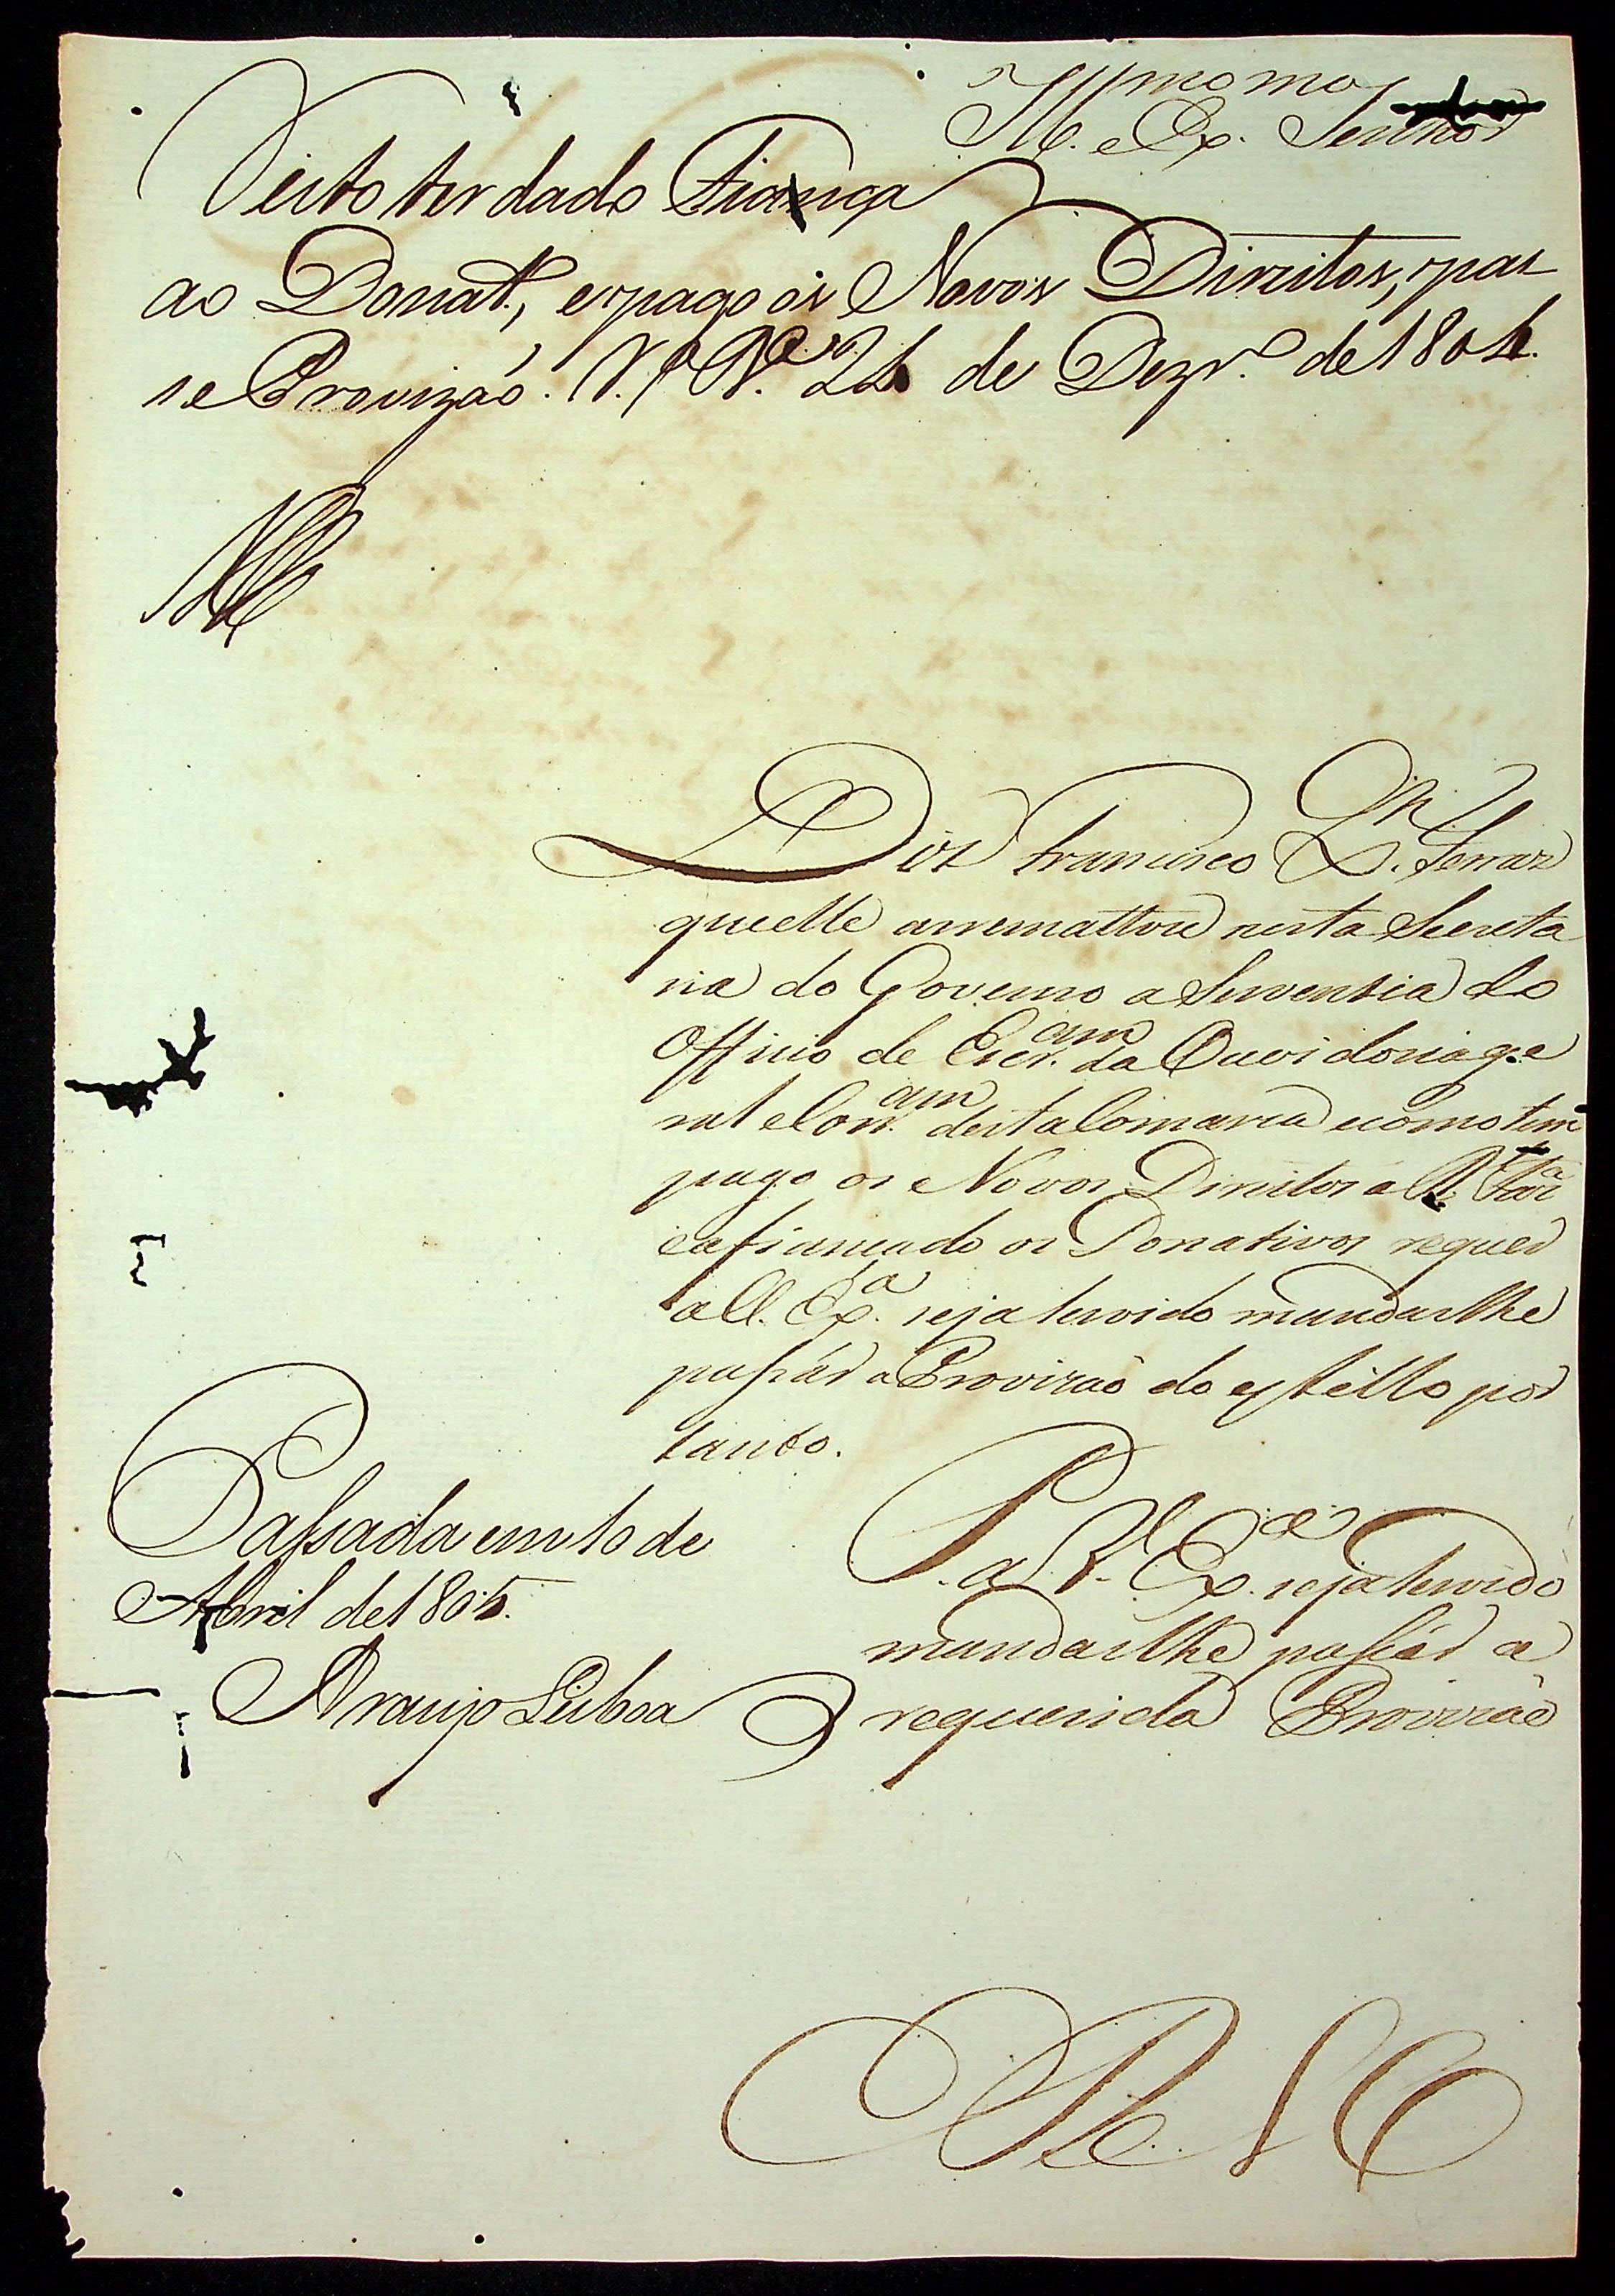 Ill.mo e Ex.mo Senhor
Visto ter dado Fiança
ao Donat.º, e pago os Novos Direitos, pas
se Provizaõ. V.ª R.ª 24 de Dezr.º de 1804.
Diz Francisco Ferraz
que elle arremattou nesta Secreta
ria do Governo a Serventia do
Officio de Escr.am da Ouvidoria ge
ral e Corr.am desta Comarca e como tem
pago os Novos Direitos a R. Faz.ª
e afiançado os Donativos requer
a V. Ex.ª seja servido mandarlhe
passár a Provizaõ do estillo por
tanto.
P. a V. Ex.ª seja servido
mandarlhe passár a
requerida Provizaõ
Passada em 10 de
Abril de 1805.
Araujo Lisboa
E R M